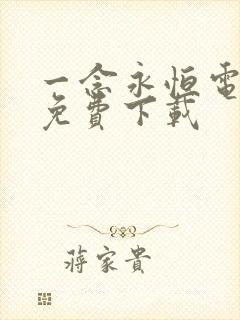 一念永恒電
免費下載
蔣家貴